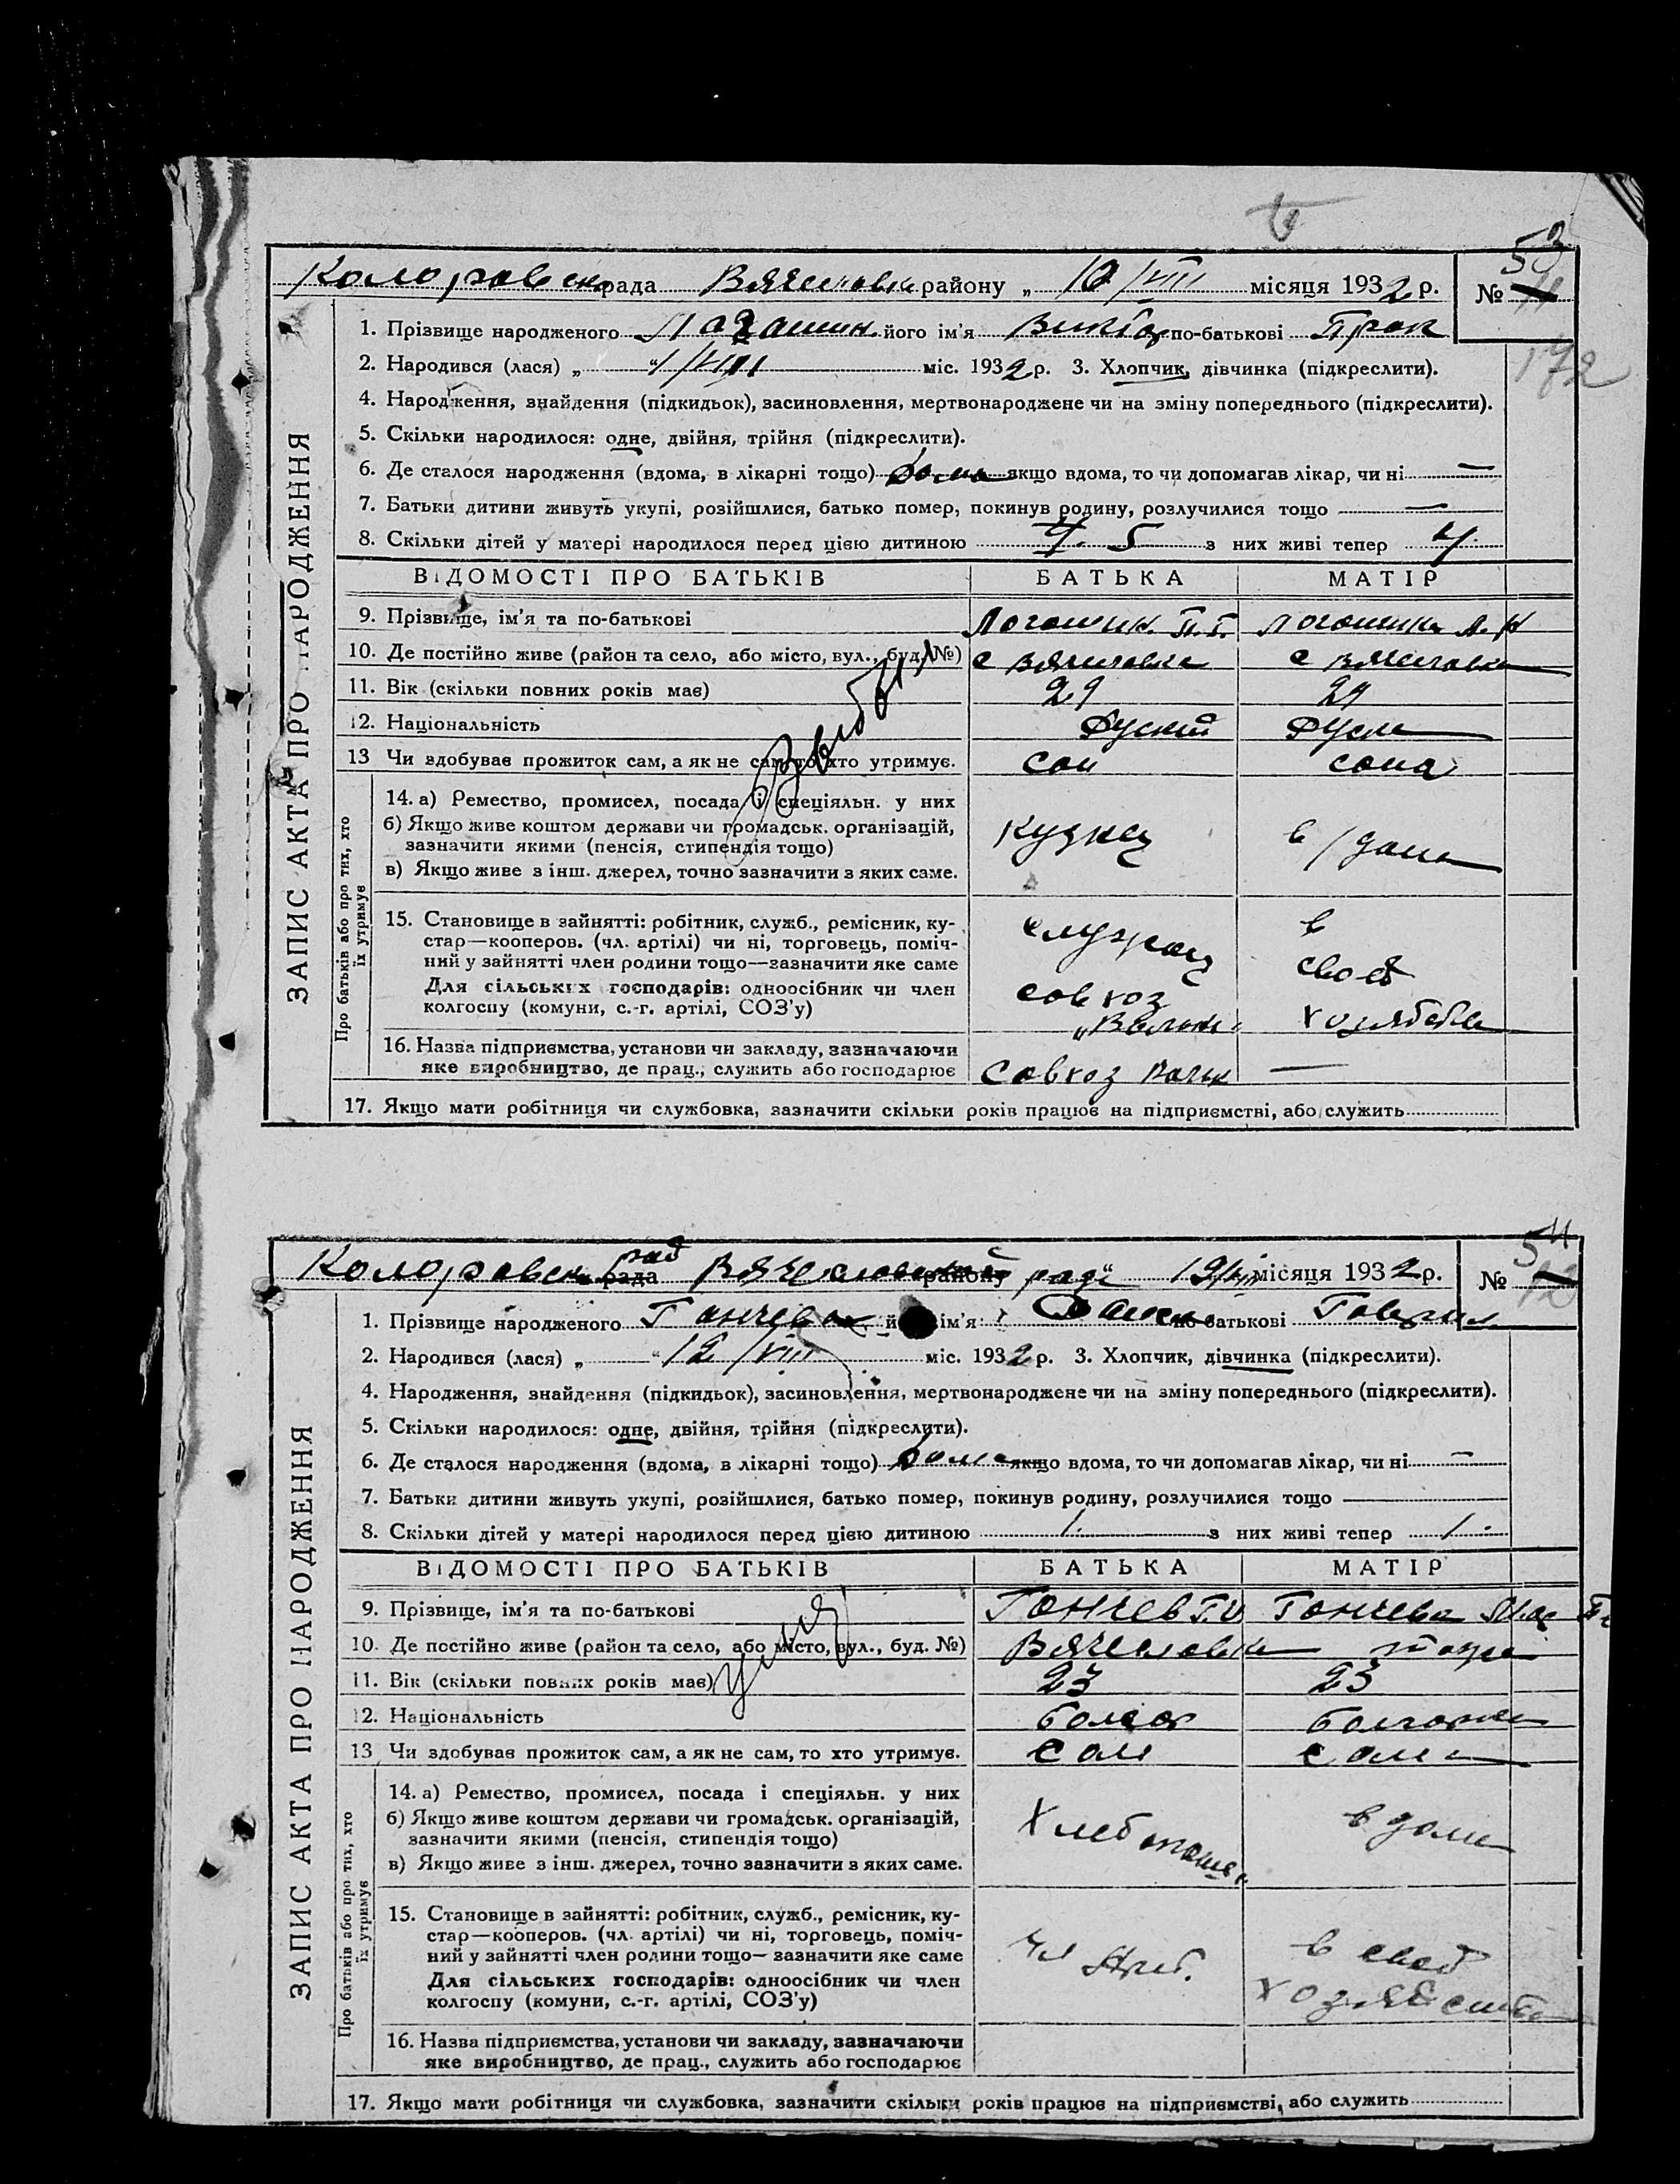 53
Коларовск рада Вячеславка району „ 10/VIII місяця 1932 р. №
172
1. Прізвище народженого його ім'я Виктор по-батькові Прок
2. Народився (лася) „ 1/VIII міс. 1932 р. 3. Хлопчик, дівчинка (підкреслити).
4. Народження, знайдення (підкидьок), засиновлення, мертвонароджене чи на зміну попереднього (підкреслити).
5. Скільки народилося: одне, двійня, трійня (підкреслити).
6. Де сталося народження (вдома, в лікарні тощо) дома якщо вдома, то чи допомагав лікар, чи ні —
7. Батьки дитини живуть укупі, розійшлися, батько помер, покинув родину, розлучилися тощо —
8. Скільки дітей у матері народилося перед цією дитиною 5 з них живі тепер 4
ЗАПИС АКТА ПРО НАРОДЖЕННЯ
ВІДОМОСТІ ПРО БАТЬКІВ БАТЬКА МАТІР
9. Прізвище, ім'я та по-батькові
10. Де постійно живе (район та село, або місто, вул., буд. №) с Вячеславка с Вячеславка
11. Вік (скільки повних років має) 29 29
12. Національність Руский Руска
13 Чи здобував прожиток сам, а як не сам, то хто утримує. сам сама
Про батьків або про тих, хто їх утримує
14. а) Ремество, промисел, посада і спеціяльн. у них
б) Якщо живе коштом держави чи громадськ. організацій,
зазначити якими (пенсія, стипендія тощо) кузнец в/дома
в) Якщо живе з інш. джерел, точно зазначити з яких саме.
15. Становище в зайнятті: робітник, служб., ремісник, ку-
стар—кооперов. (чл. артілі) чи ні, торговець, поміч- в
ний у зайнятті член родини тощо—зазначити яке саме свой
Для сільських господарів: одноосібник чи член совхоз
колгоспу (комуни, с.-г. артілі, СОЗ'у)
16. Назва підприємства, установи чи закладу, зазначаючи
яке виробництво, де прац., служить або господарює Совхоз —
17. Якщо мати робітниця чи службовка, зазначити скільки років працює на підприємстві, або служить
54
Коларовск рада Вячеславской району рада 12/VIII місяця 1932 р. №
1. Прізвище народженого Ганчева ім'я по батькові Гаврил.
2. Народився (лася) „ 12/VIII міс. 1932 р. 3. Хлопчик, дівчинка (підкреслити).
4. Народження, знайдення (підкидьок), засиновлення, мертвонароджене чи на зміну попереднього (підкреслити).
5. Скільки народилося: одне, двійня, трійня (підкреслити).
6. Де сталося народження (вдома, в лікарні тощо) дома якщо вдома, то чи допомагав лікар, чи ні —
7. Батьки дитини живуть укупі, розійшлися, батько помер, покинув родину, розлучилися тощо —
8. Скільки дітей у матері народилося перед цією дитиною 1. з них живі тепер 1.
ЗАПИС АКТА ПРО НАРОДЖЕННЯ
ВІДОМОСТІ ПРО БАТЬКІВ БАТЬКА МАТІР
9. Прізвище, ім'я та по-батькові Ганчев Г.И Ганчева
10. Де постійно живе (район та село, або місто, вул., буд. №) Вячеславка тоже
11. Вік (скільки повних років має) 23 23
12. Національність болгар болгарка
13 Чи здобував прожиток сам, а як не сам, то хто утримує. сам сама
Про батьків або про тих, хто їх утримує
14. а) Ремество, промисел, посада і спеціяльн. у них
б) Якщо живе коштом держави чи громадськ. організацій,
зазначити якими (пенсія, стипендія тощо) Хлебопашец в доме
в) Якщо живе з інш. джерел, точно зазначити з яких саме.
15. Становище в зайнятті: робітник, служб., ремісник, ку-
стар—кооперов. (чл. артілі) чи ні, торговець, поміч-
ний у зайнятті член родини тощо—зазначити яке саме чл Арт. в свой
Для сільських господарів: одноосібник чи член хозяйства
колгоспу (комуни, с.-г. артілі, СОЗ'у)
16. Назва підприємства, установи чи закладу, зазначаючи
яке виробництво, де прац., служить або господарює
17. Якщо мати робітниця чи службовка, зазначити скільки років працює на підприємстві, або служить